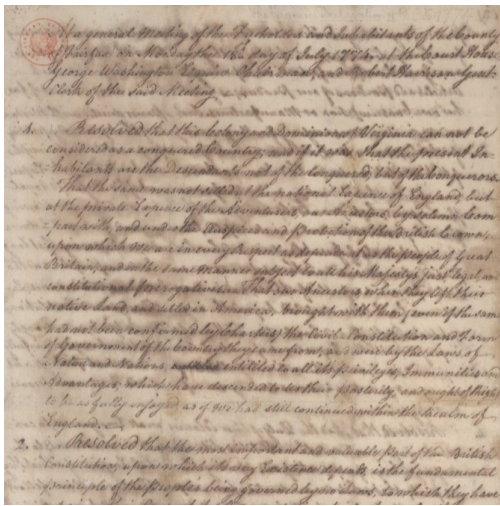 At a general Meeting of the Freeholders and Inhabitants of the County
of Fairfax on Monday the 18th day of July 1774, at the Court House
George Washington Esquire Chairman, and Robert Harrison Gent.
Clerk of the said Meeting
1. Resolved that this Colony and Dominion of Virginia can not be
considered as a conquered Country; and if it was, that the present In-
habitants are the Descendants not of the Conquered, but of the Conquerors.
That the same was not settled at the national Expence of England, but
at the private Expence of the Adventurers, our Ancestors, by solemn Com-
pact with, and under the Auspices and Protection of the British Crown;
upon which we are in every Respect as dependant as the People of Great
Britain, and in the same Manner subject to all his Majesty's just, legal, and
constitutional Prerogatives. That our Ancestors, when they left their
native Land, and settled in America, brought with them (even if the same
had not been confirmed by Charters) the Civil-Constitution and Form
of Government of the Country they came from; and were by the Laws of
Nature and Nations, entitled to all it's Privileges, Immunities and
Advantages; which have descended to us their Posterity, and ought of Right
to be as fully enjoyed, as if we had still continued within the Realm of
England.
2. Resolved that the most important and valuable Part of the British
Constitution, upon which it's very Existence depends, is the fundamental
Principle of the People's being governed by no Laws, to which they have